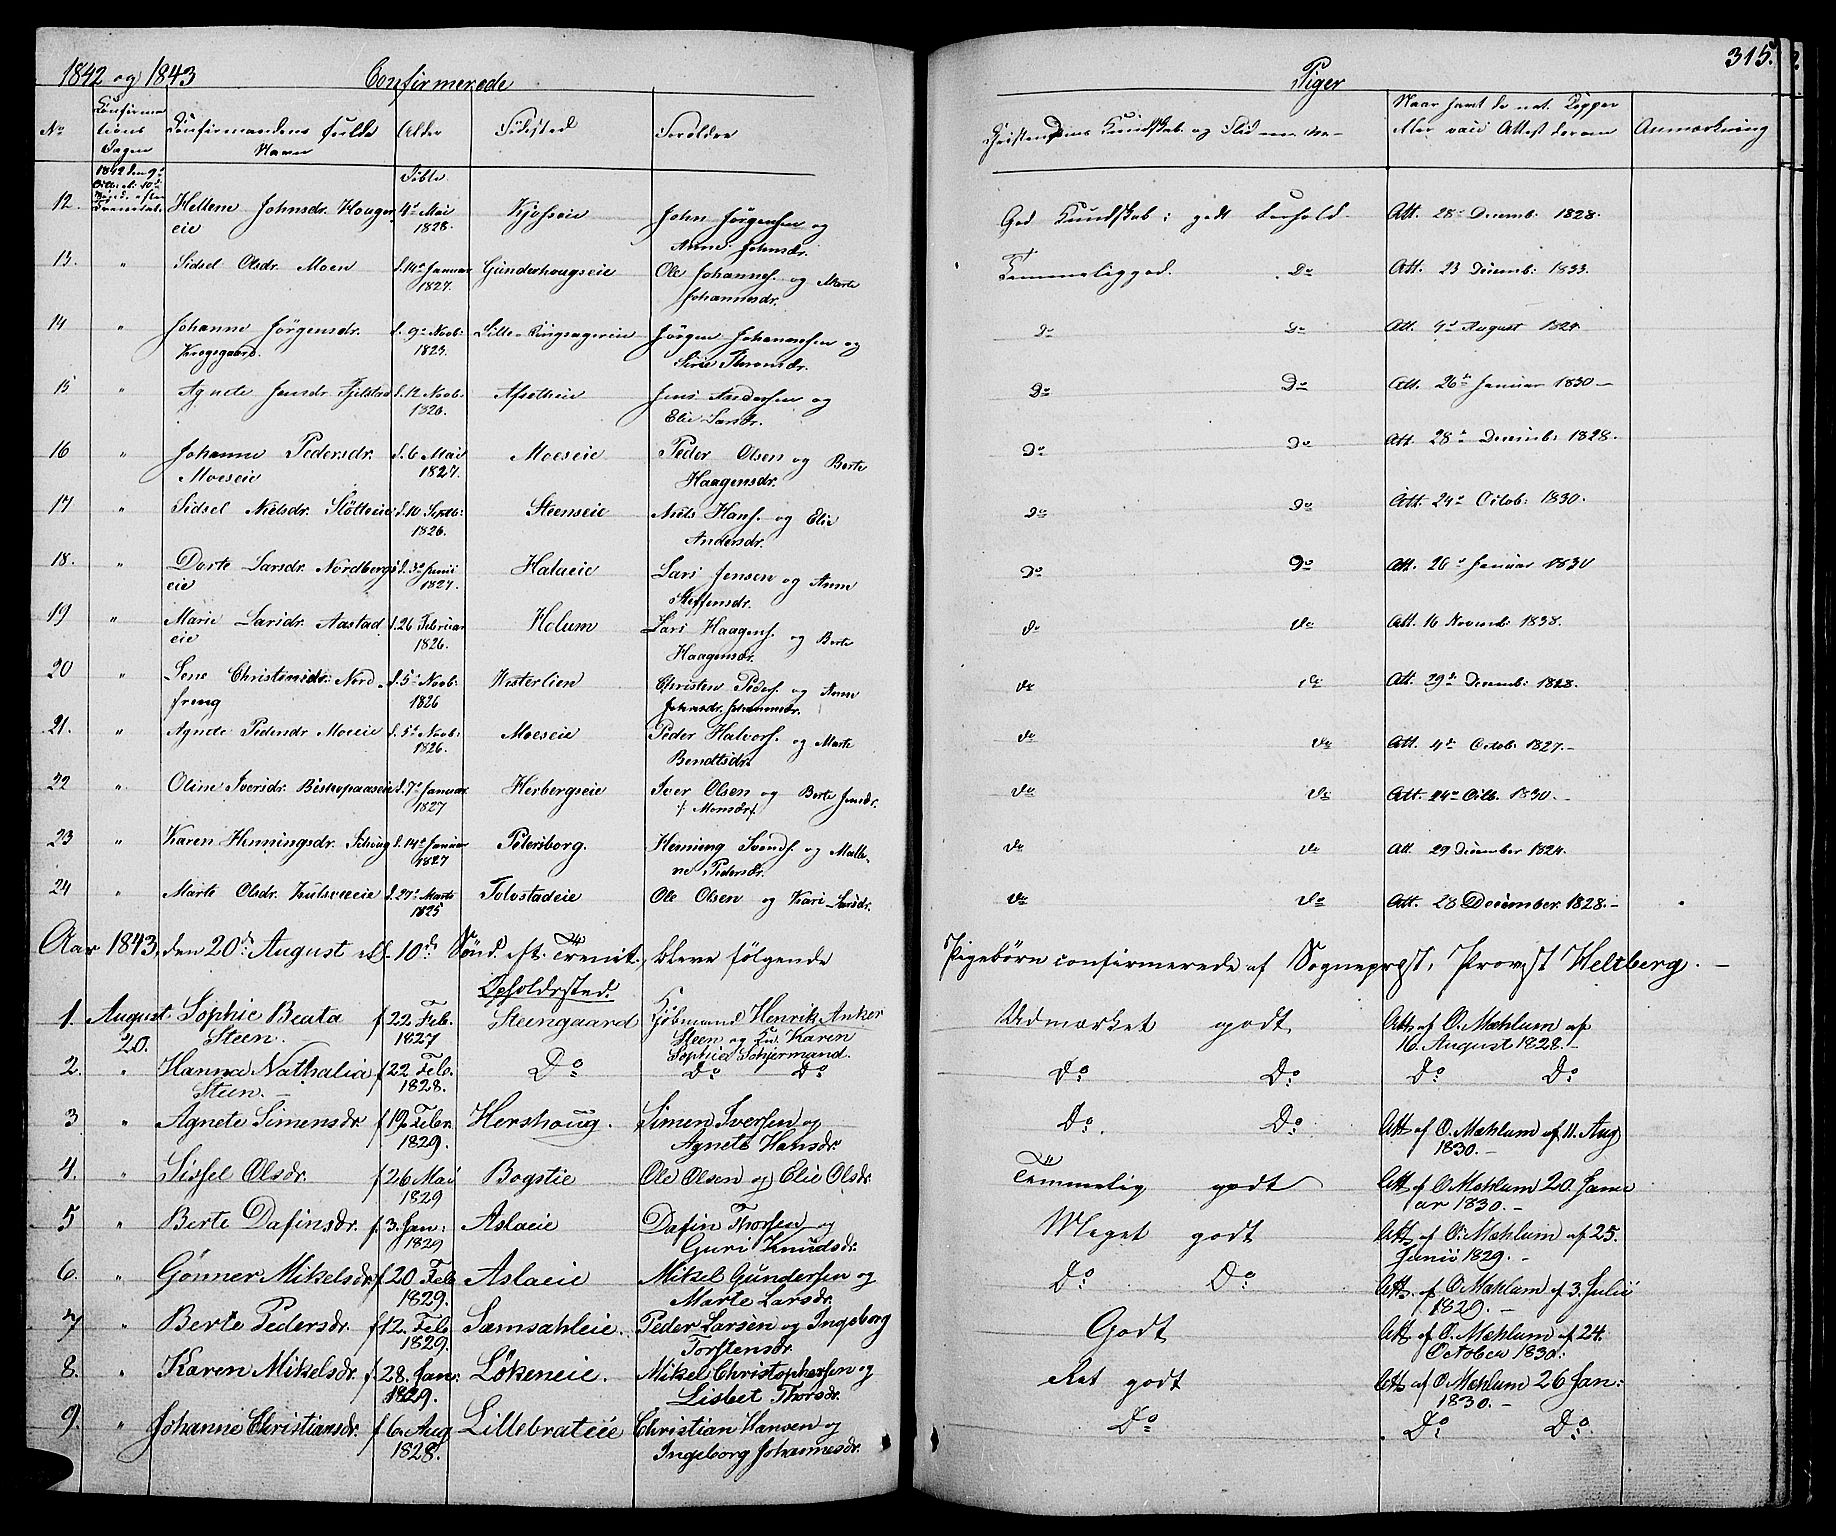 1842 og 1843 Confirmerede
Piger 315.
No Confirma- Confirmandens fulde Alder Födested Forældre
tions Navn
Dagen
Christendoms Kundskab og Naar samt de nat. Kopper Anmærkning
eller vacc Attest derom
1842 den 9de Födte
12. Hellene Johnsdr. Houger 4de Mai Kjosseie John Jörgensen og God Kundskab; godt Forhold Att. 28de Decemb: 1828.
eie 1828. Anne Johnsdr.
13. " Sidsel Olsdr. Moen f. 14de Januar Gunderhougseie Ole Johannes. og Marte Temmelig god. Do Att. 23 Decemb: 1833.
1827. Johannesdr.
14 " Johanne Jörgensdr. f. 9de Novb: Lille-Ringsagereie Jörgen Johannessen og Do Do Att. 9de August 1824.
Krogsgaard. 1823. Sirie Thronsdr.
15 " Agnete Jensdr. f. 12 Novb: Jens Andersen og Do Do Att. 26de Januar 1830 –
1826. Elie Larsdr.
16 " Johanne Pedersdr. f. 6 Mai Moeseie Peder Olsen og Berte Do Do Att. 28de Decemb: 1828.
Moeseie 1827. Haagensdr.
17 " Sidsel Nielsdr. Slölteie f. 10 Septb: Steenseie Niels Hans. og Elie Do Do Att. 24de Octob: 1830.
1826. Andersdr.
18. " Dorte Larsdr. Nordbergs f. 3de Junii Halaeie Lars Jensen og Anne Do Do Att. 26de Januar 1830
eie 1827. Steffensdr.
19 " Marie Larsdr. Aastad f. 26 Februar Holum Lars Haagens. og Berte Do Do Att. 16 Novemb: 1838.
eie 1826. Haagensdr.
20 " Lene Christensdr. Nord- f. 5de Novb: Vesterlien Christen Peders. og Anne Do Do Att. 29de Decemb: 1828.
freng 1826 Johnsdr. Johannesdr.
21. " Agnete Pedersdr Moeseie f. 5de Novb: Moeseie Peder Halvors. og Marte Do Do Att. 4de Octob: 1827. –
1826. Bendtsdr.
22 " Oline Iversdr. Biskopaaseie f. 7de Januar Herbergseie Iver Olsen og Berte Jensdr. Do Do Att. 24de Octb. 1830. –
1827 /: Monsdr:/
23 " Karen Henningsdr. f. 14de Januar Petersborg. Henning Svends. og Malle- Do Do Att. 29 December 1824.
1827 ne Pedersdr.
24 " Marte Olsdr. Kulsveeie f. 27de Marts Tolvstadeie Ole Olsen og Kari Larsdr. Do Do Att. 28 December 1828. –
1825
Aar 1843, den 20de August ell. 10de Sönd. eft. Trenit., bleve fölgende Pigebörn confirmerede af Sogneprest, Provst Heltberg. –
Opholdssted.
1. August Sophie Beata f 22 Feb. Steengaard Kjöbmand Henrik Anker Udmærket godt Att af O. Mæhlum af
20. Steen. 1827 Steen og Fru Karen 16. August 1828. –
Sophia Schjermand.
2. " Hanna Nathalia f 22 Feb. Do Do Do Do Do Do Do
Steen. – 1828.
3 " Agnete Simensdr. f 19 Febr. Hershoug. Simen Iversen og Do. Do. Att af O. Mæhlum af 11. Aug
1829. Agnete Hansdr. 1830. –
4. " Sissel Olsdr. f 26 Mai Bogstie Ole Olsen og Elie Olsdr. Temmelig godt Att af O. Mæhlum 20. Janu
1829 ar 1830. –
5 " Berte Dafinsdr. f 3. Jan: Aslaeie Dafin Thorsen og Meget godt Att af O. Mæhlum af 25.
1829 Guri Knudsdr. Junii 1829. –
6. " Gönner Mikelsdr f 20 Feb Aslaeie Mikel Gundersen og Do Do Att. af O. Mæhlum af 3. Julii
1829. Marte Larsdr. 1829. –
7 " Berte Pedersdr. f 12. Feb Sæmsahleie. Peder Larsen og Ingeborg Godt Att af O. Mæhlum af 24.
1829. Torstensdr. October 1830.
8. " Karen Mikelsdr. f 28. Jan: Lökeneie. Mikel Christophersen og Ret godt Att af O. Mæhlum 26 Jan:
1829. Lisbet Thorsdr. 1830. –
9. " Johanne Christiansdr. f 6. Aug Lillebrateie Christian Hansen og Do Do Do.
1828. Ingeborg Johannesdr.